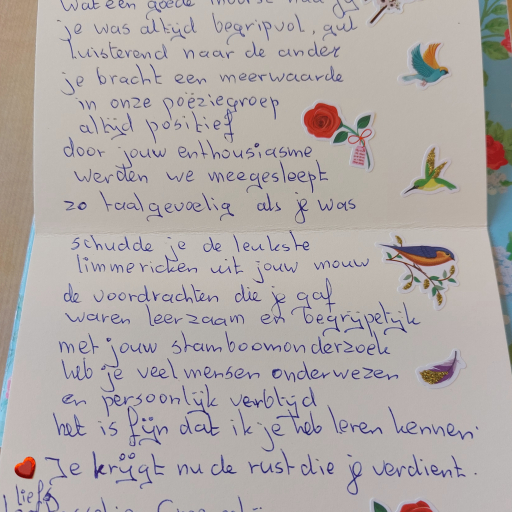 Wat een goede
je was altijd begripvol, gul
luisterend naar de ander
je bracht een meerwaarde
in onze poëziegroep
altijd positief
door jouw enthousiasme
werden we meegesleept
zo taalgevoelig als je was
schudde je de leukste
limmericken uit jouw mouw
de voordrachten die je gaf
waren leerzaam en begrijpelijk
met jouw stamboomonderzoek
heb je veel mensen onderwezen
en persoonlijk verblijd
het is fijn dat ik je heb leren kennen.
Je krijgt nu de rust die je verdient.
liefs